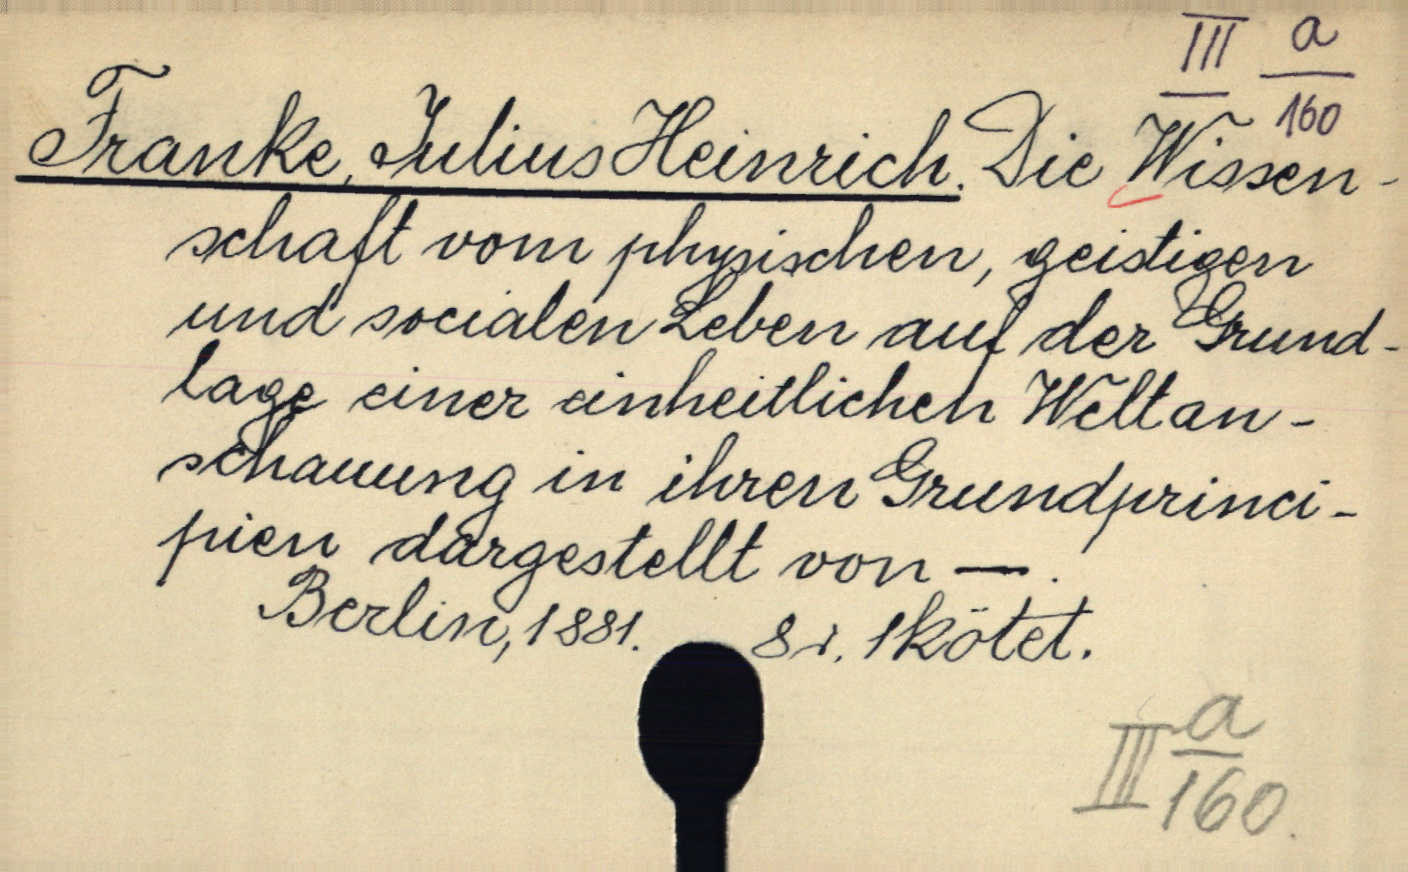 III a
160
Franke, Julius Heinrich. Die Wissen-
schaft vom physischen, geistigen
und socialen Leben auf der Grund-
lage einer einheitlichen Weltan-
schauung in ihren Grundprinci-
pien dargestellt von —.
Berlin, 1881. 8r. 1 kötet.
III a
160.